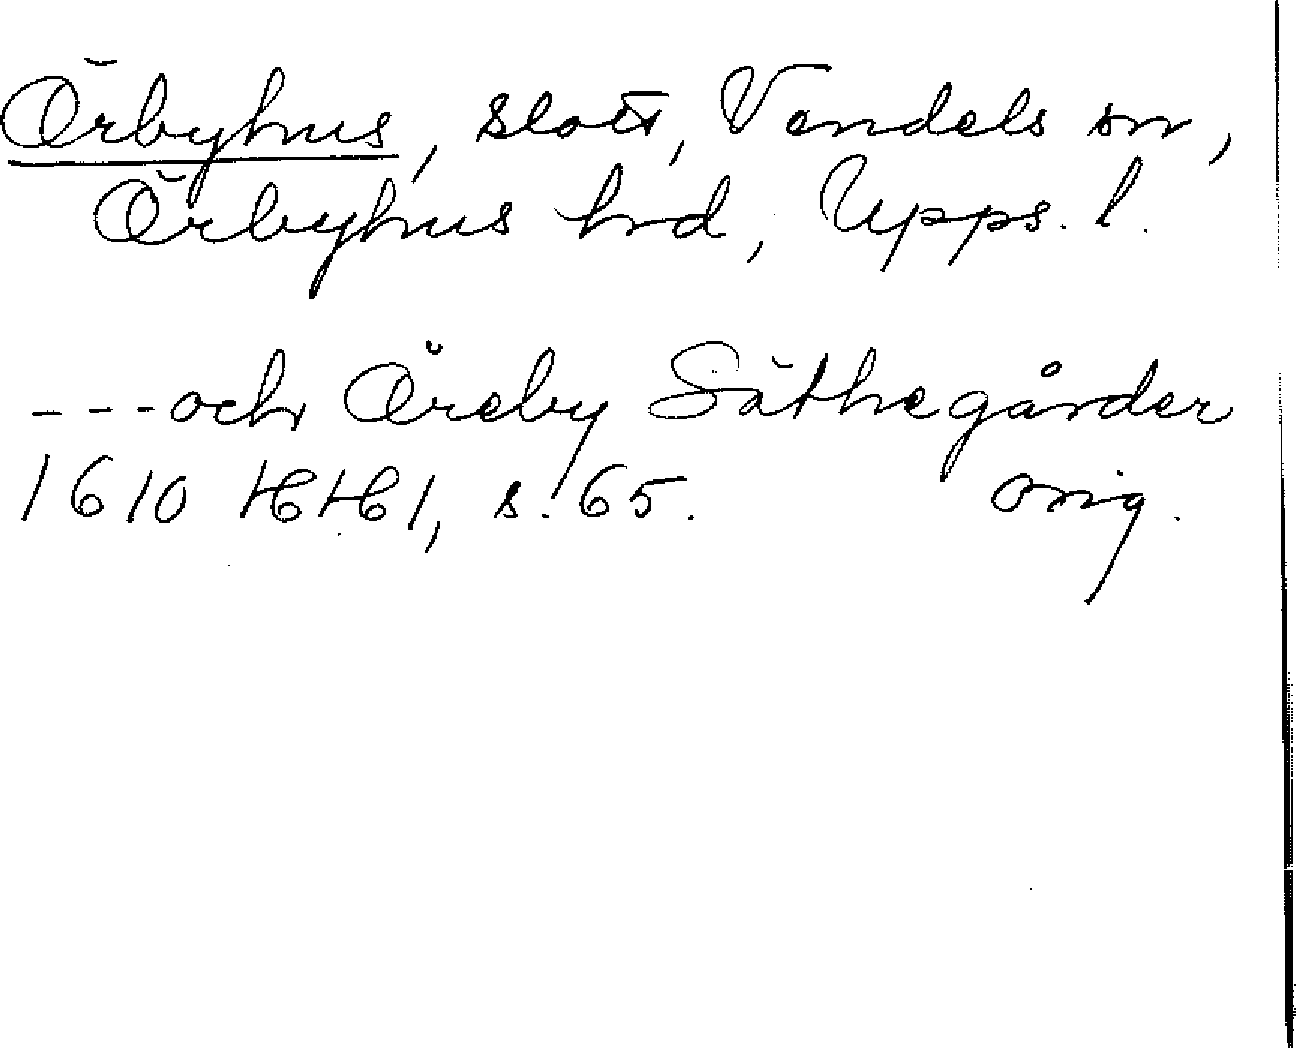 Örbyhus, slott, Vendels sn,
Örbyhus hd, Upps. l.
---och Öreby Säthegårder
1610 HH1, s. 65. orig.